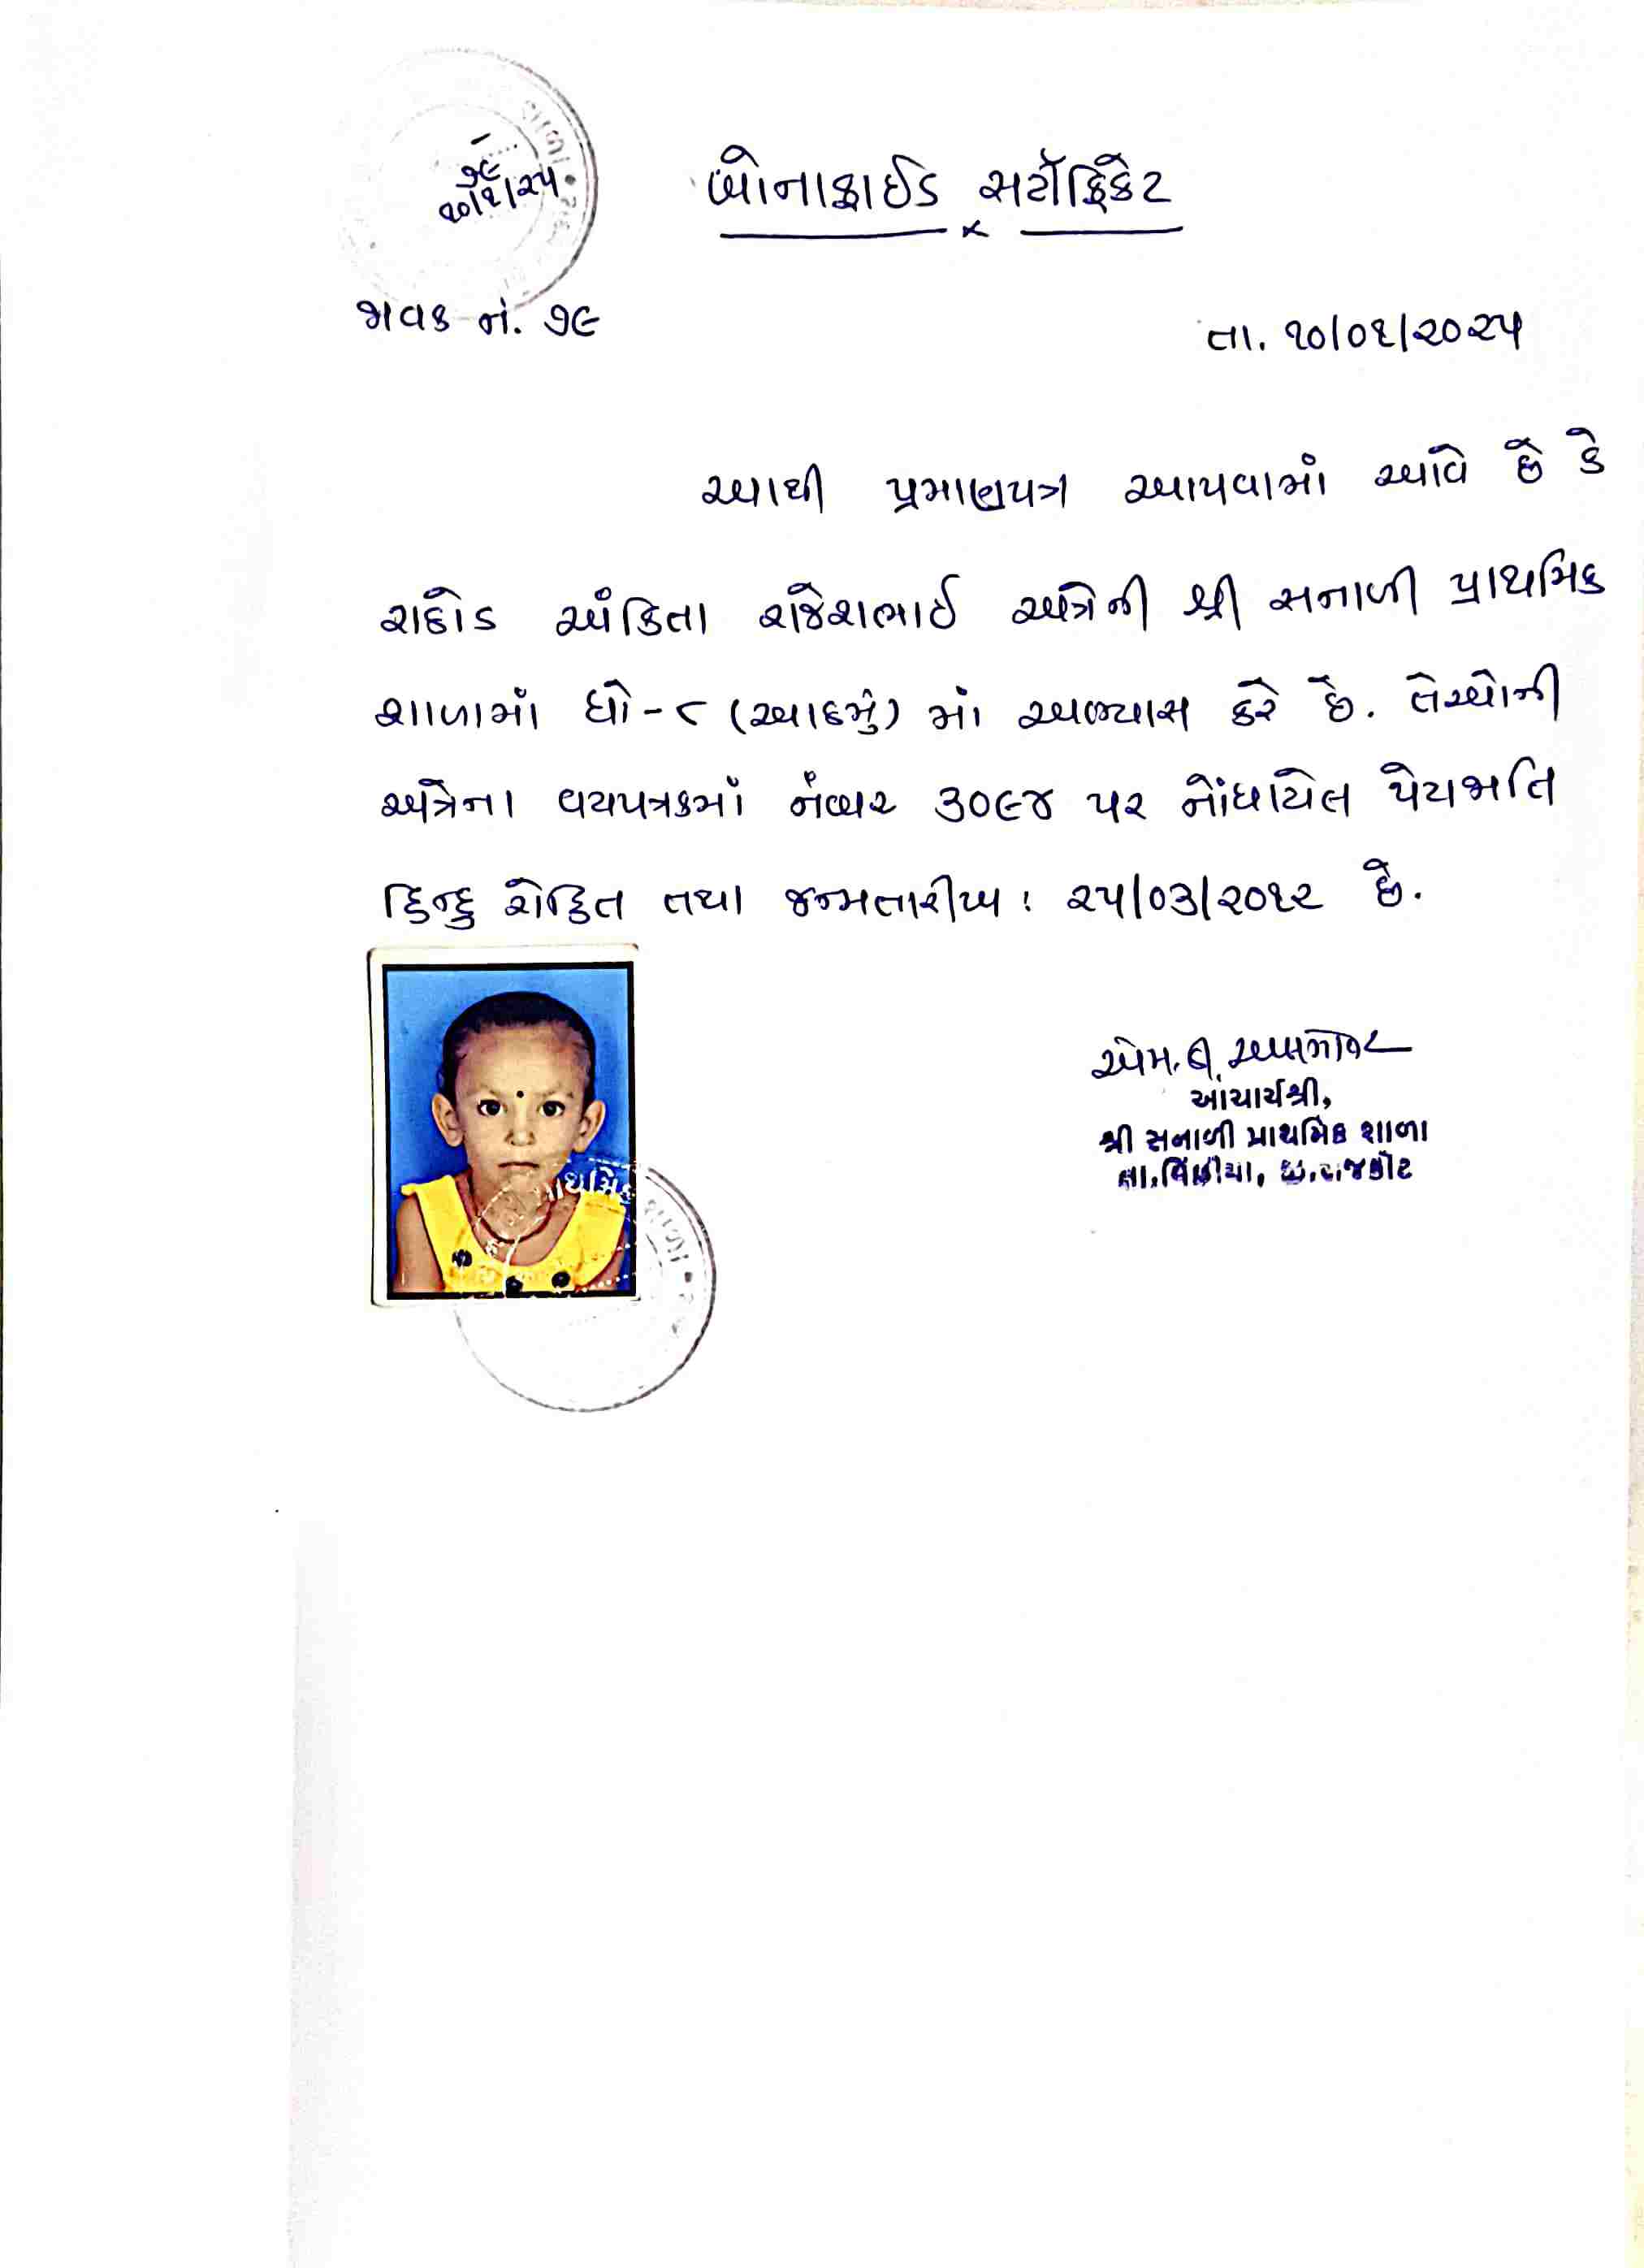 ૭૯
૧૦/૧/૨૫
બોનાફાઈડ સર્ટીફિકેટ
જાવક નં. ૭૯
તા. ૧૦/૦૧/૨૦૨૫
આથી પ્રમાણપત્ર આપવામાં આવે છે કે
રાઠોડ અંકિતા રાજેશભાઈ અત્રેની શ્રી સનાળી પ્રાથમિક
શાળામાં ધો-૮ (આઠમું) માં અભ્યાસ કરે છે. તેઓની
અત્રેના વયપત્રકમાં નંબર ૩૦૯૪ પર નોંધાયેલ પેટાજાતિ
હિન્દુ રોહિત તથા જન્મતારીખ: ૨૫/૦૩/૨૦૧૨ છે.
એમ. બી.
આચાર્યશ્રી,
શ્રી સનાળી પ્રાથમિક શાળા
તા.વિંછીયા, જી.રાજકોટ